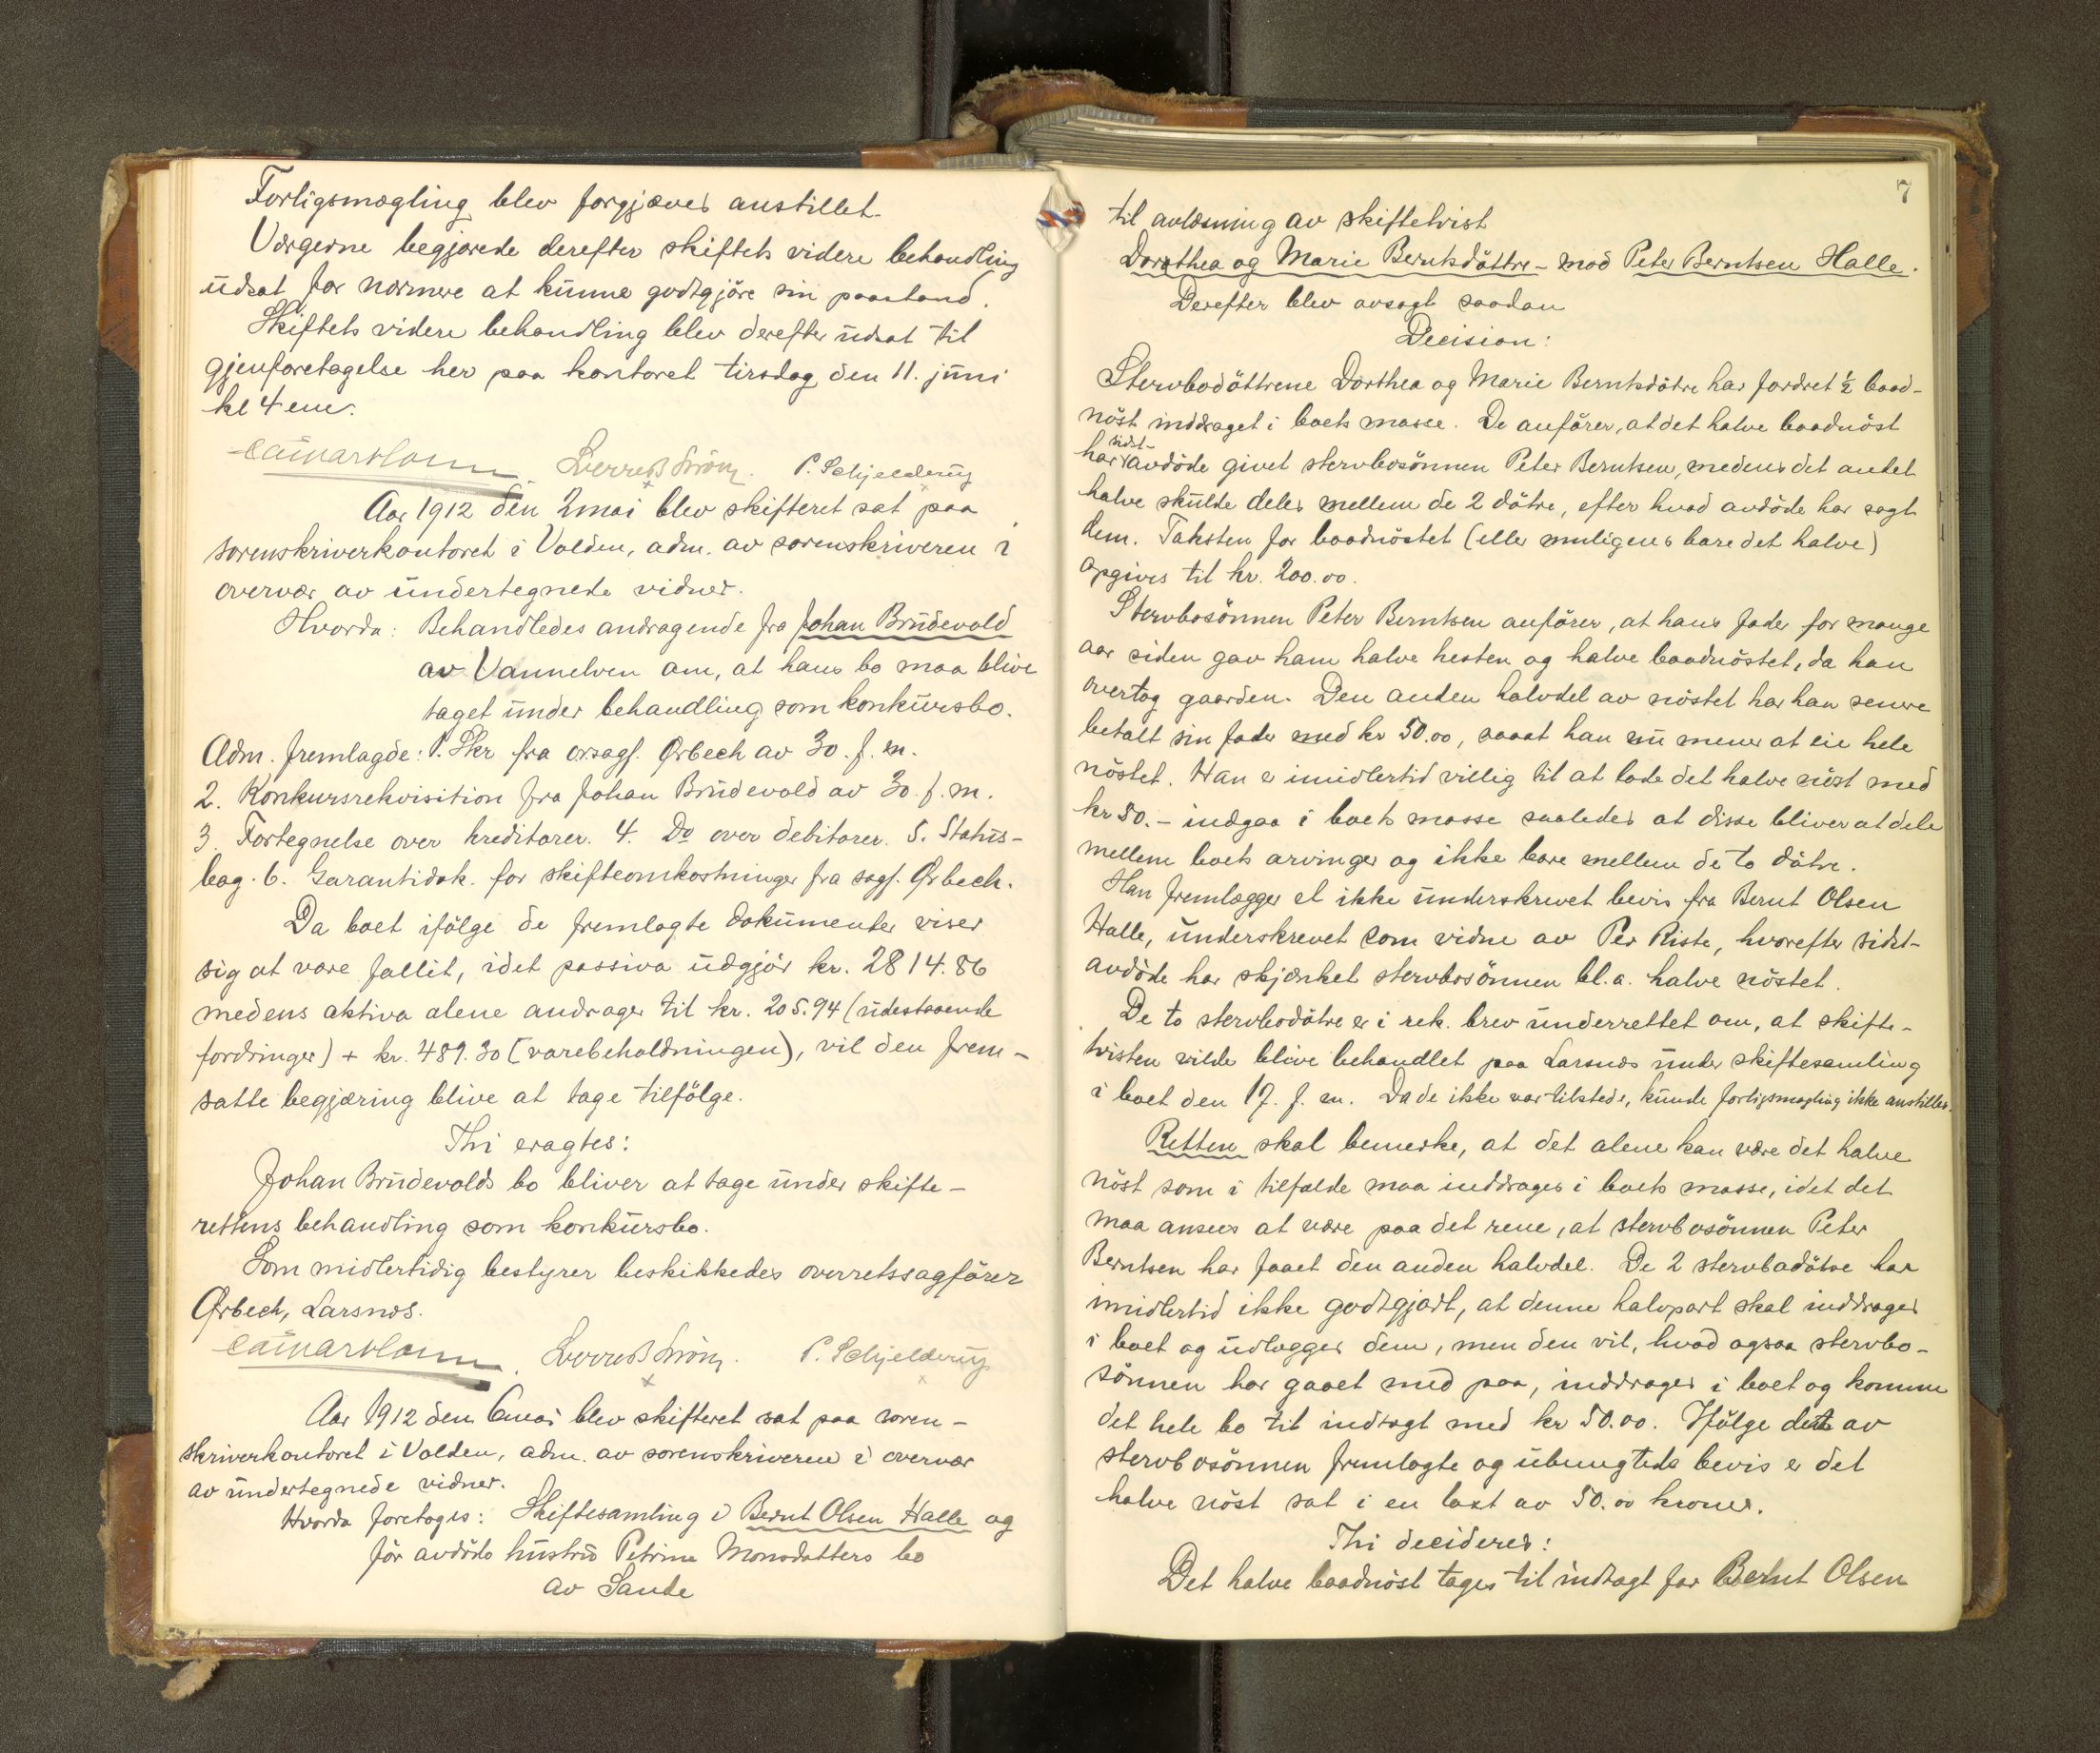 Forligsmægling blev forgjæves anstillet.
Værgerne begjærede derefter skiftets videre behandling
udsat for nærmere at kunne godtgjöre sin paastand.
Skiftets videre behandling blev derefter udsat til
gjenforetagelse her paa kontoret tirsdag den 11. juni
kl 4 em.
P. Schjelderup
Aar 1912 den 2 mai blev skifteret sat paa
sorenskriverkontoret i Volden, adm. av sorenskriveren i
overvær av undertegnede vidner.
Hvorda: Behandledes andragende fra Johan Brudevold
av Vannelven om, at hans bo maa blive
taget under behandling som konkursbo.
Adm. fremlagde: 1. Skr fra orsagf. Ørbech av 30. f. m.
2. Konkursrekvisition fra Johan Brudevold av 30. f. m.
3. Fortegnelse over kreditorer. 4. Do over debitorer. 5. Status-
bog. 6. Garantidok. for skifteomkostninger fra sagf. Ørbech.
Da boet ifölge de fremlagte dokumenter viser
sig at være fallit, idet passiva udgjör kr. 2814.86
medens aktiva alene andrager til kr. 205.94 (udestaaende
fordringer) + kr. 489.30 (varebeholdningen), vil den frem-
satte begjæring blive at tage tilfölge.
Thi eragtes:
Johan Brudevolds bo bliver at tage under skifte-
rettens behandling som konkursbo.
Som midlertidig bestyrer beskikkedes overretssagförer
Ørbech, Larsnæs.
P. Schjelderup
Aar 1912 den 6 mai blev skifteret sat paa soren-
skriverkontoret i Volden, adm. av sorenskriveren i overvær
av undertegnede vidner.
Hvorda foretoges: Skiftesamling i Bernt Olsen Halle og
för avdöde hustru Petrine Monsdatters bo
av Sande
7
til avlæsning av skiftetvist
Dorothea og Marie Berntsdöttre - mod Peter Berntsen Halle.
Derefter blev avsagt saadan
Decision:
Stervbodöttrene Dorthea og Marie Berntsdötre har fordret ½ baad-
nöst inddraget i boets masse. De anförer, at det halve baadnöst
sidst-
har avdöde givet stervbosönnen Peter Berntsen, medens det andet
halve skulde deles mellem de 2 dötre, efter hvad avdöde har sagt
dem. Taksten for baadnöstet (eller muligens bare det halve)
opgives til kr. 200.00.
Stervbosönnen Peter Berntsen anförer, at hans fader for mange
aar siden gav ham halve hesten og halve baadnöstet, da han
overtog gaarden. Den anden halvdel av nöstet har han senere
betalt sin fader med kr 50.00, saaat han nu mener at eie hele
nöstet. Han er imidlertid villig til at lade det halve nöst med
kr 50.- indgaa i boets masse saaledes at disse bliver at dele
mellem boets arvinger og ikke bare mellem de to dötre.
Han fremlægger et ikke underskrevet bevis fra Bernt Olsen
Halle, underskrevet som vidne av Per Riste, hvorefter sidst-
avdöde har skjænket stervbosönnen bl.a. halve nöstet.
De to stervbodötre er i rek. brev underrettet om, at skifte-
tvisten vilde blive behandlet paa Larsnæs under skiftesamling
i boet den 17. f. m. Da de ikke var tilstede, kunde forligsmægling ikke anstilles.
Retten skal bemerke, at det alene kan være det halve
nöst som i tilfælde maa inddrages i boets masse, idet det
maa ansees at være paa det rene, at stervbosönnen Peter
Berntsen har faaet den anden halvdel. De 2 stervbodötre har
imidlertid ikke godtgjort, at denne halvpart skal inddrages
i boet og udlægges dem, men den vil, hvad ogsaa stervbo-
sönnen har gaaet med paa, inddrages i boet og komme
det hele bo til indtægt med kr 50.00. Ifölge dette av
stervbosönnen fremlagte og ubenegtede bevis er det
halve nöst sat i en taxt av 50.00 kroner.
Thi decideres:
Det halve baadnöst tages til indtægt for Bernt Olsen